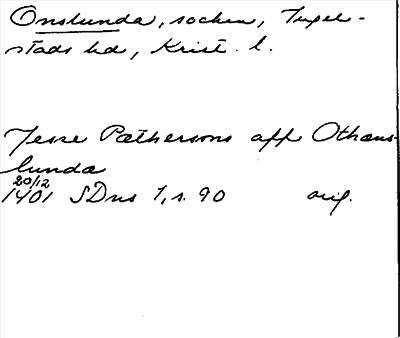 Onslunda, socken, Ingel-
stads hd, Krist. l.
Jesse Pæthersons aff Othans-
lunda
20/12
1401 SDns 1, s. 90 orig.